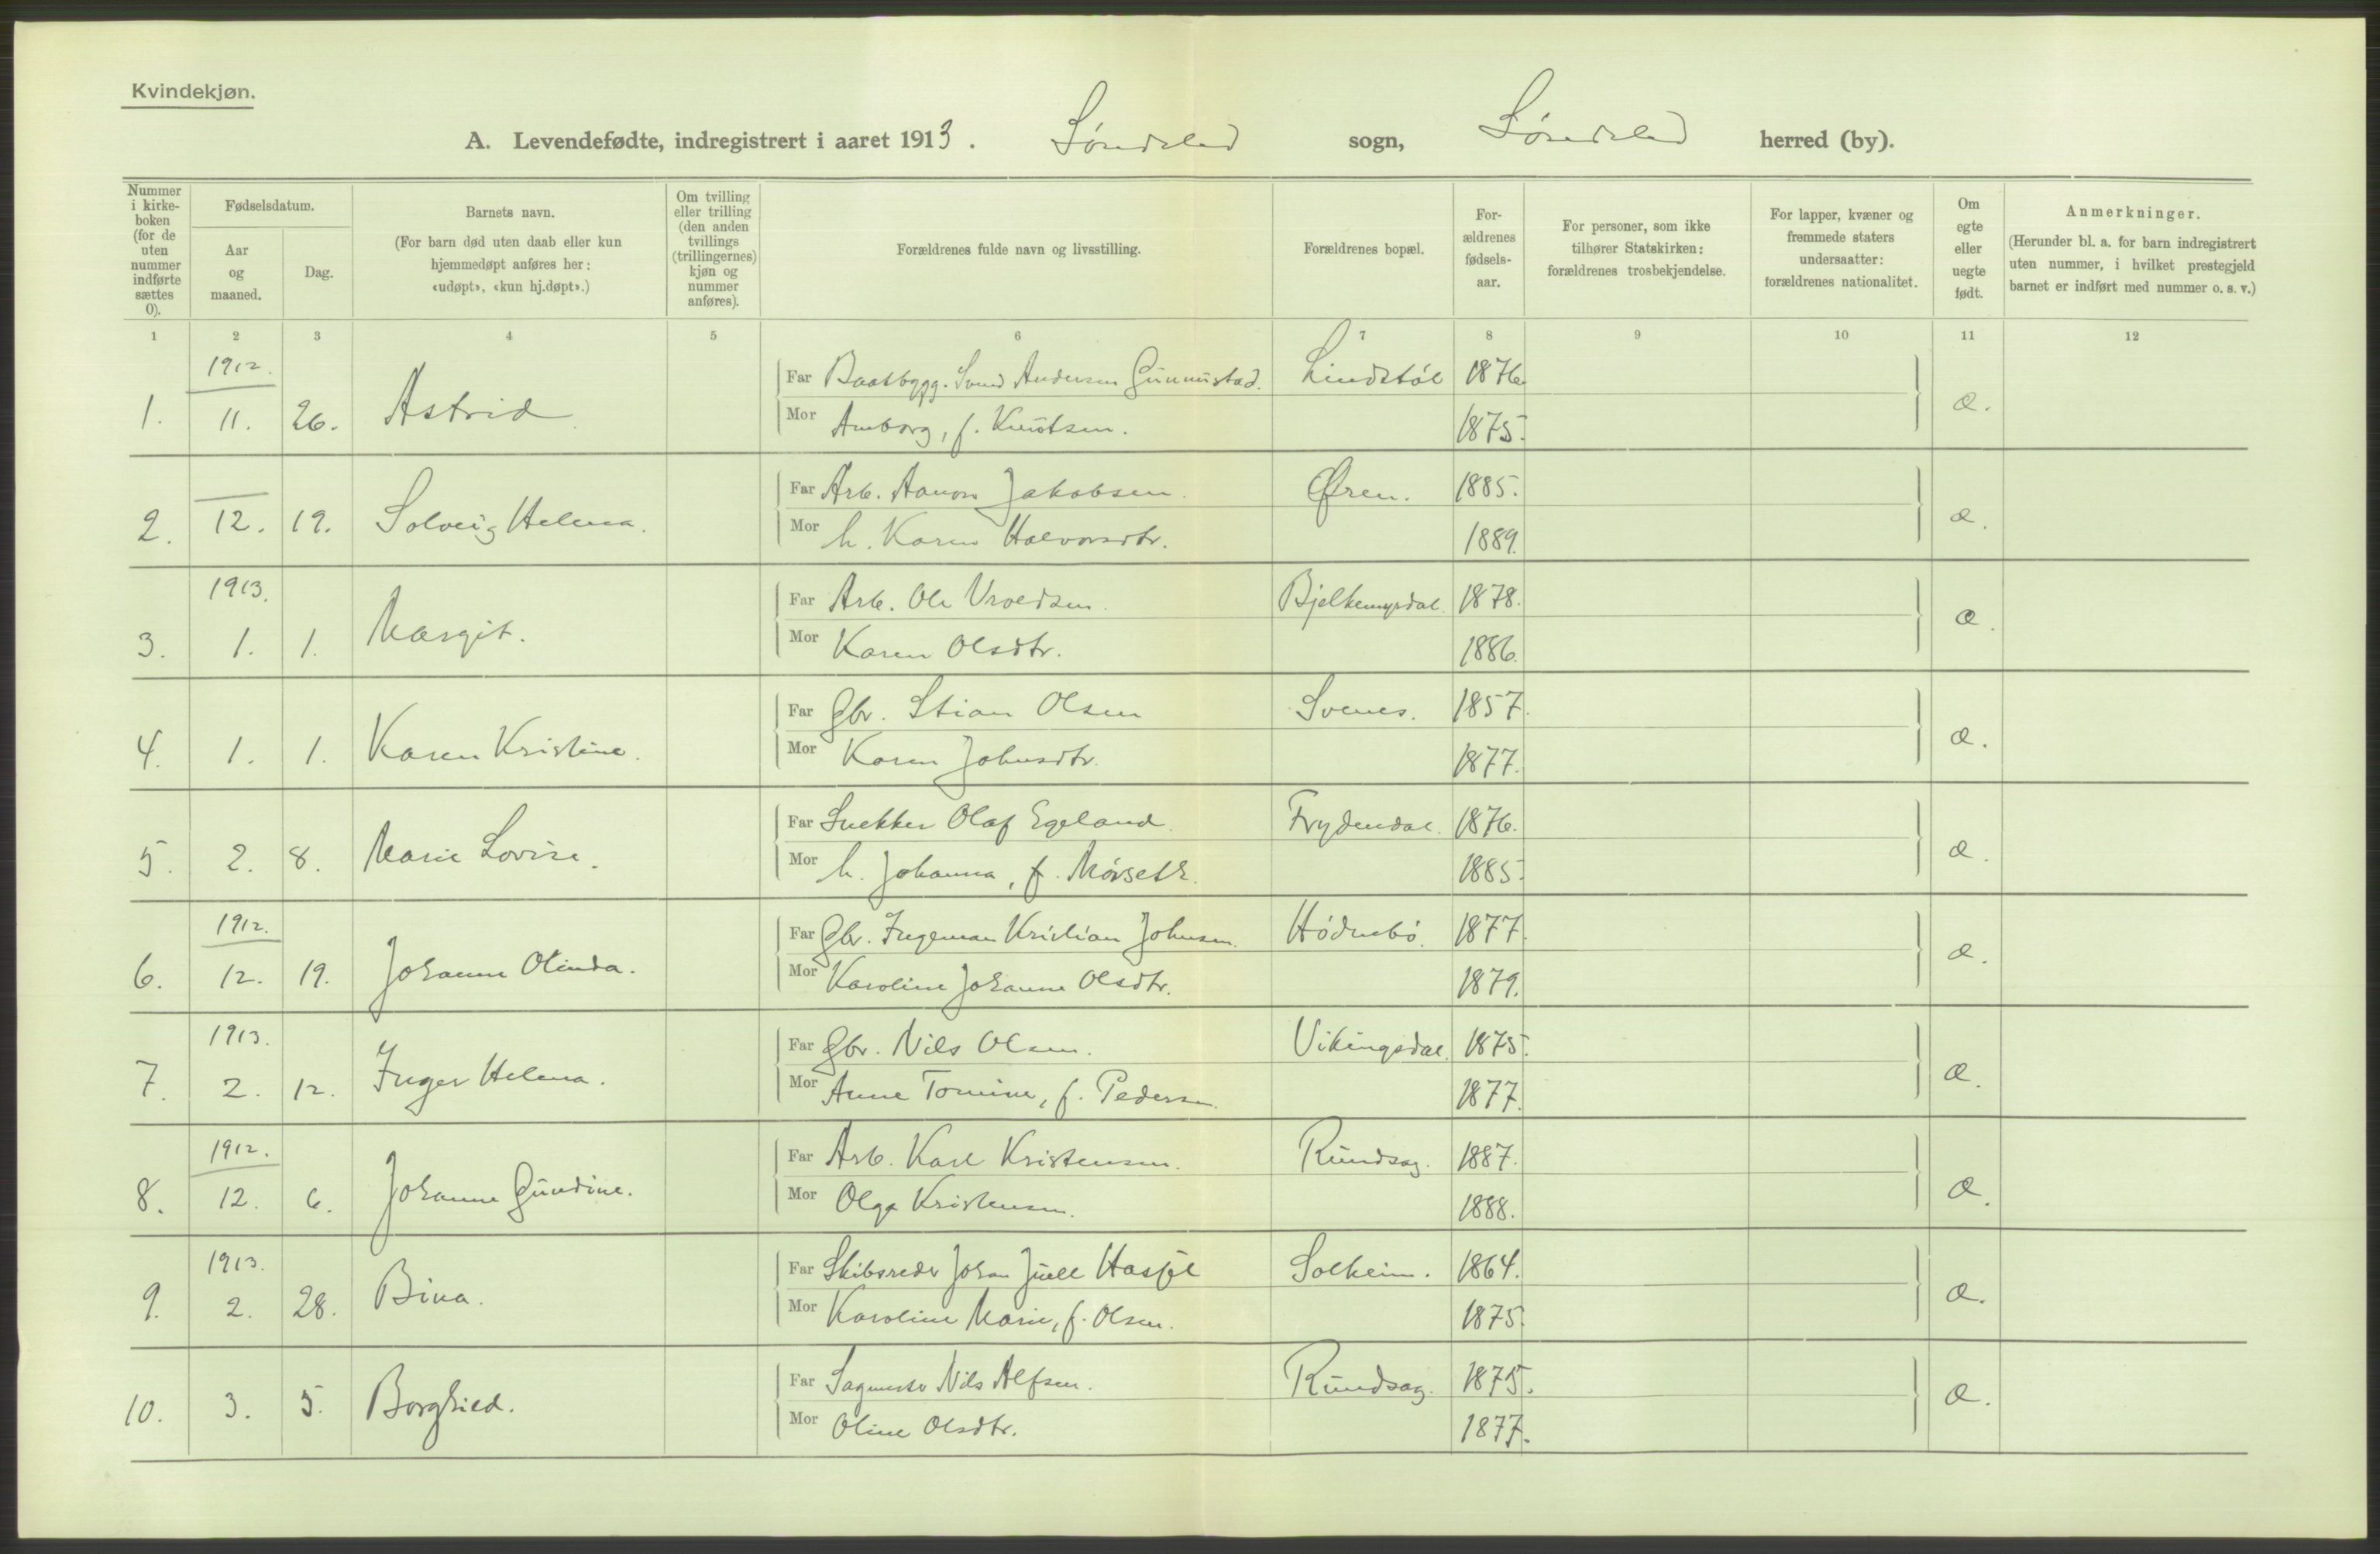 Kvindekjøn.
A. Levendefødte, indregistrert i aaret 1913. Søndeled sogn, Søndeled herred (by).
Nummer i kirke-boken (for de uten nummer indførte sættes 0).
Fødselsdatum.
Aar og maaned.
Dag.
Barnets navn.
(For barn død uten daab eller kun hjemmedøpt anføres her: «udøpt», «kun hj.døpt».)
Om tvilling eller trilling (den anden tvillings (trillingernes) kjøn og nummer anføres).
Forældrenes fulde navn og livsstilling.
Forældrenes bopæl.
For-ældrenes fødsels-aar.
For personer, som ikke tilhører Statskirken: forældrenes trosbekjendelse.
For lapper, kvæner og fremmede staters undersaatter: forældrenes nationalitet.
Om egte eller uegte født.
Anmerkninger.
(Herunder bl. a. for barn indregistrert uten nummer, i hvilket prestegjeld barnet er indført med nummer o. s. v.)
1 2 3 4 5 6 7 8 9 10 11 12
1912.
1. 11. 26. Astrid
Far Baatbygg. Svend Andersen Gunnustad. Lindstøl 1876.
Mor Amborg, f. Knutsen. 1875. æ.
2. 12. 19. Solveig Helena.
Far Arb. Aanon Jakobsen. Øren. 1885.
Mor h. Karen Halvorsdtr. 1889. æ.
1913.
3. 1. 1. Margit.
Far Arb. Ole Vroldsen. Bjelkemyrdal. 1878.
Mor Karen Olsdtr. 1886. æ.
4. 1. 1. Karen Kristine.
Far Gbr. Stian Olsen Svenes. 1857.
Mor Karen Johnsdtr. 1877. æ.
5. 2. 8. Marie Lovise.
Far Snekker Olaf Egeland. Frydendal. 1876.
Mor h. Johanna, f. Mørseth. 1885. æ.
1912.
6. 12. 19. Johanne Olinda.
Far Gbr. Ingeman Kristian Johnsen. Hødnebø. 1877.
Mor Karoline Johanne Olsdtr. 1879. æ.
1913.
7. 2. 12. Inger Helena.
Far Gbr. Nils Olsen. Vikingsdal. 1875.
Mor Anne Tomine, f. Pedersen. 1877. æ.
1912.
8. 12. 6. Johanne Gundine.
Far Arb. Karl Kristensen. Rundsag. 1887.
Mor Olga Kristensen. 1888. æ.
1913.
9. 2. 28. Bina.
Far Skibsreder Johan Juell Hasfjel Solheim. 1864.
Mor Karoline Marie, f. Olsen. 1875. æ.
10. 3. 5. Borghild.
Far Sagmester Nils Alfsen. Rundsag. 1875.
Mor Oline Olsdtr. 1877. æ.